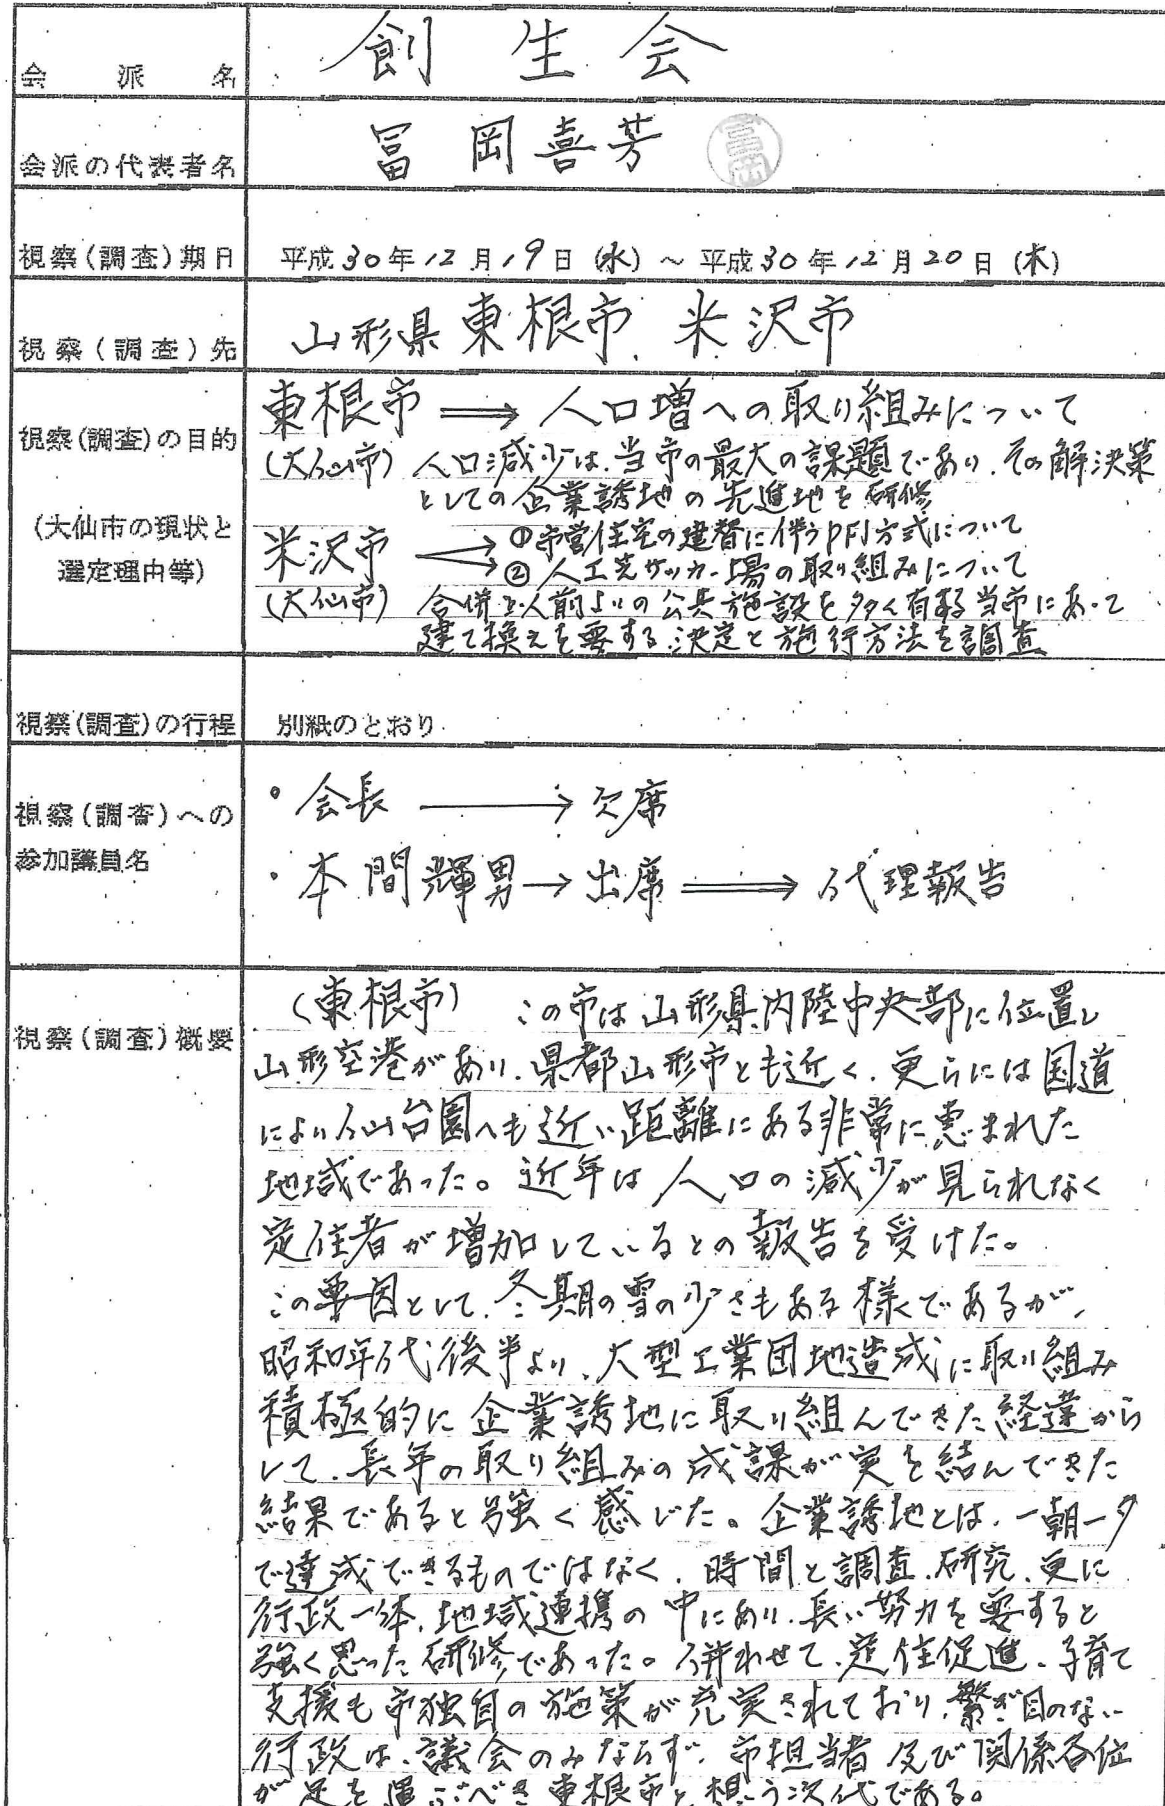 会派名
創生会
会派の代表者名
冨岡喜芳
冨岡
視察(調査)期日
平成30年12月19日(水)～平成30年12月20日(木)
視察(調査)先
山形県東根市、米沢市
視察(調査)の目的
(大仙市の現状と
選定理由等)
東根市 ⟹ 人口増への取り組みについて
(大仙市) 人口減少は、当市の最大の課題であり、その解決策
としての企業誘地の先進地を研修
米沢市 → ①市営住宅の建替に伴うPFI方式について
→ ②人工芝サッカー場の取り組みについて
(大仙市) 合併以前よりの公共施設を多く有する当市にあって
建て換えを要する決定と施行方法を調査
視察(調査)の行程
別紙のとおり
視察(調査)への
参加議員名
・会長 → 欠席
・本間輝男→出席 ⟹ 代理報告
視察(調査)概要
(東根市) この市は山形県内陸中央部に位置し
山形空港があり、県都山形市とも近く、更らには国道
により仙台圏へも近い距離にある非常に恵まれた
地域であった。近年は人口の減少が見られなく
定住者が増加しているとの報告を受けた。
この要因として、冬期の雪の少さもある様であるが、
昭和年代後半より、大型工業団地造成に取り組み
積極的に企業誘地に取り組んできた経違から
して、長年の取り組みの成課が実を結んできた
結果であると強く感じた。企業誘地とは、一朝一夕
で達成できるものではなく、時間と調査、研究、更に
行政一体、地域連携の中にあり、長い努力を要すると
強く思った研修であった。併わせて、定住促進、子育て
支援も市独自の施策が充実されており、繋ぎ目のない
行政は、議会のみならず、市担当者及び関係各位
が足を運ぶべき東根市と想う次代である。